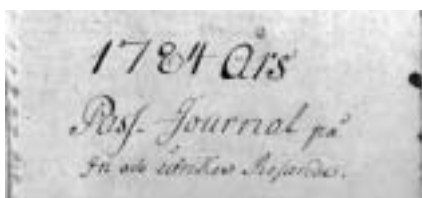 1784 Års
Pass-Journal på
In och utrikes Resande.